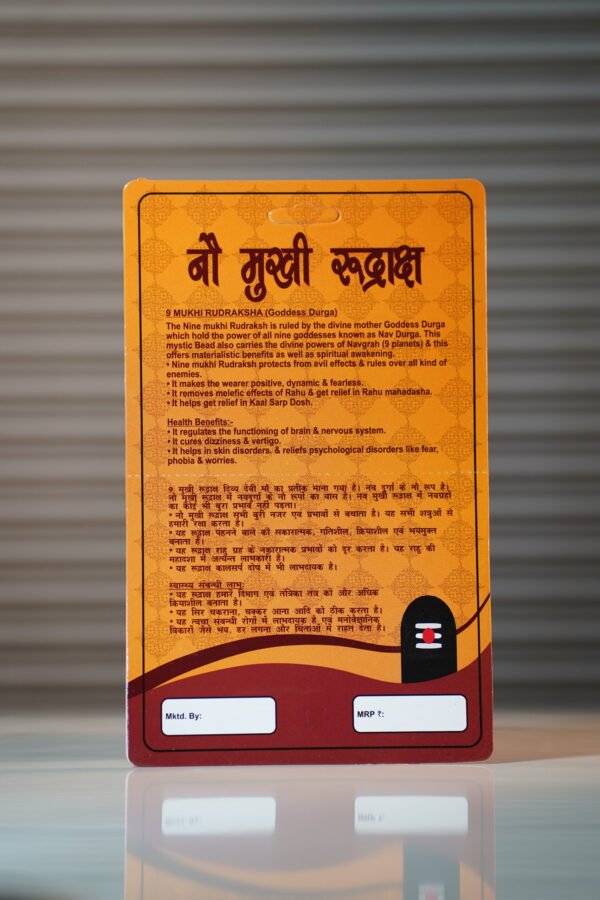 नौ मुखी रूद्राक्ष
9 MUKHI RUDRAKSHA (Goddess Durga)
The Nine mukhi Rudraksh is ruled by the divine mother Goddess Durga
which hold the power of all nine goddesses known as Nav Durga. This
mystic Bead also carries the divine powers of Navgrah (9 planets) & this
offers materialistic benefits as well as spiritual awakening.
• Nine mukhi Rudraksh protects from evil effects & rules over all kind of
enemies.
• It makes the wearer positive, dynamic & fearless.
• It removes melefic effects of Rahu & get relief in Rahu mahadasha.
• It helps get relief in Kaal Sarp Dosh.
Health Benefits:-
• It regulates the functioning of brain & nervous system.
• It cures dizziness & vertigo.
• It helps in skin disorders. & reliefs psychological disorders like fear,
phobia & worries.
9 मुखी रूद्राक्ष दिव्य देवी माँ का प्रतीक माना गया है। नव दुर्गा के नौ रूप है।
नौ मुखी रूद्राक्ष में नवदुर्गा के नौ रूपों का वास है। नव मुखी रूद्राक्ष में नवग्रहों
का कोई भी बुरा प्रभाव नहीं पड़ता।
• नौ मुखी रूद्राक्ष सभी बुरी नजर एवं प्रभावों से बचाता है। यह सभी शत्रुओं से
हमारी रक्षा करता है।
• यह रूद्राक्ष पहनने वाले को सकारात्मक, गतिशील, क्रियाशील एवं भयमुक्त
बनाता है।
• यह रूद्राक्ष राहु ग्रह के नकारात्मक प्रभावों को दूर करता है। यह राहु की
महादशा में अत्यन्त लाभकारी है।
• यह रूद्राक्ष कालसर्प दोष में भी लाभदायक है।
स्वास्थ्य संबन्धी लाभ:
• यह रूद्राक्ष हमारे दिमाग एवं तंत्रिका तंत्र को और अधिक
क्रियाशील बनाता है।
• यह सिर चकराना, चक्कर आना आदि को ठीक करता है।
• यह त्वचा संबन्धी रोगों में लाभदायक है एवं मनोवैज्ञानिक
विकारों जैसे भय, डर लगना और चिंताओं में राहत देता है।
Mktd. By:
MRP ₹: